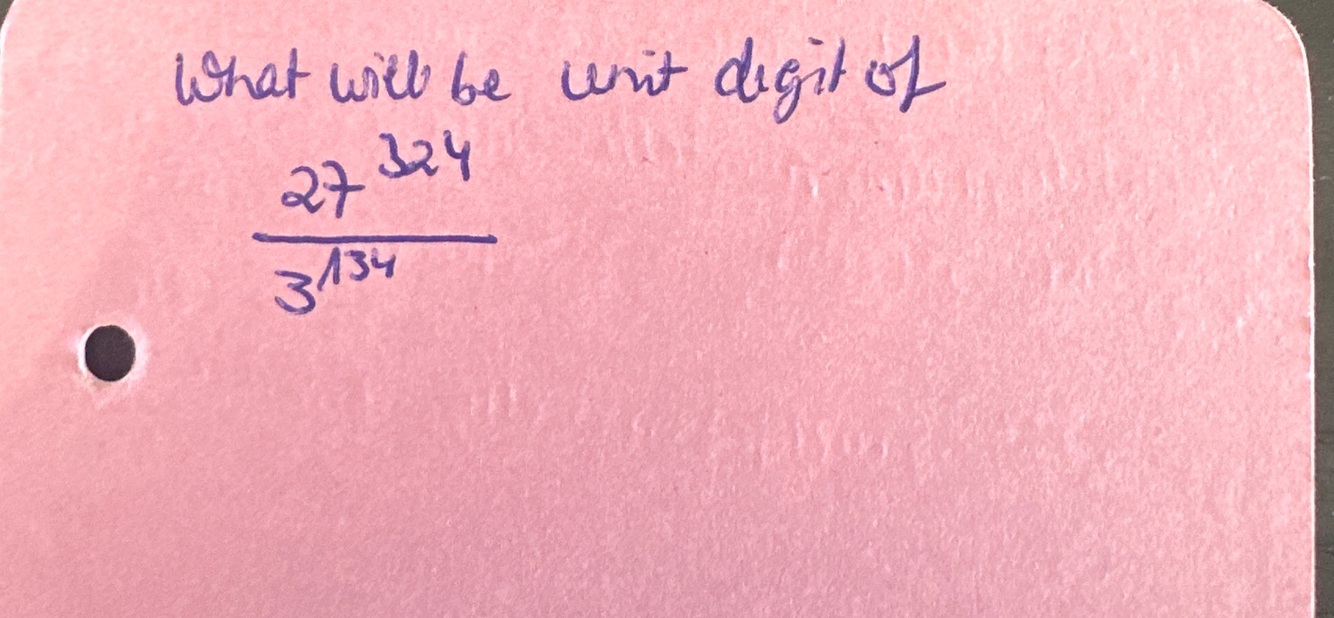 What will be unit digit of
27^324
3^134